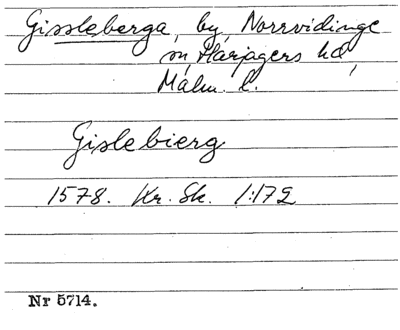 Gissleberga, by, Norrvidinge
sn, Harjagers hd,
Malm. l.
Gislebierg
1578. Kr. Sk. 1:172
Nr 5714.